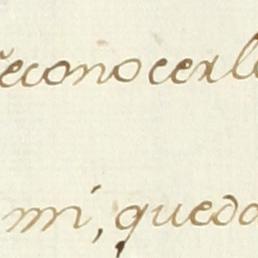 reconocerlo
mi, queda